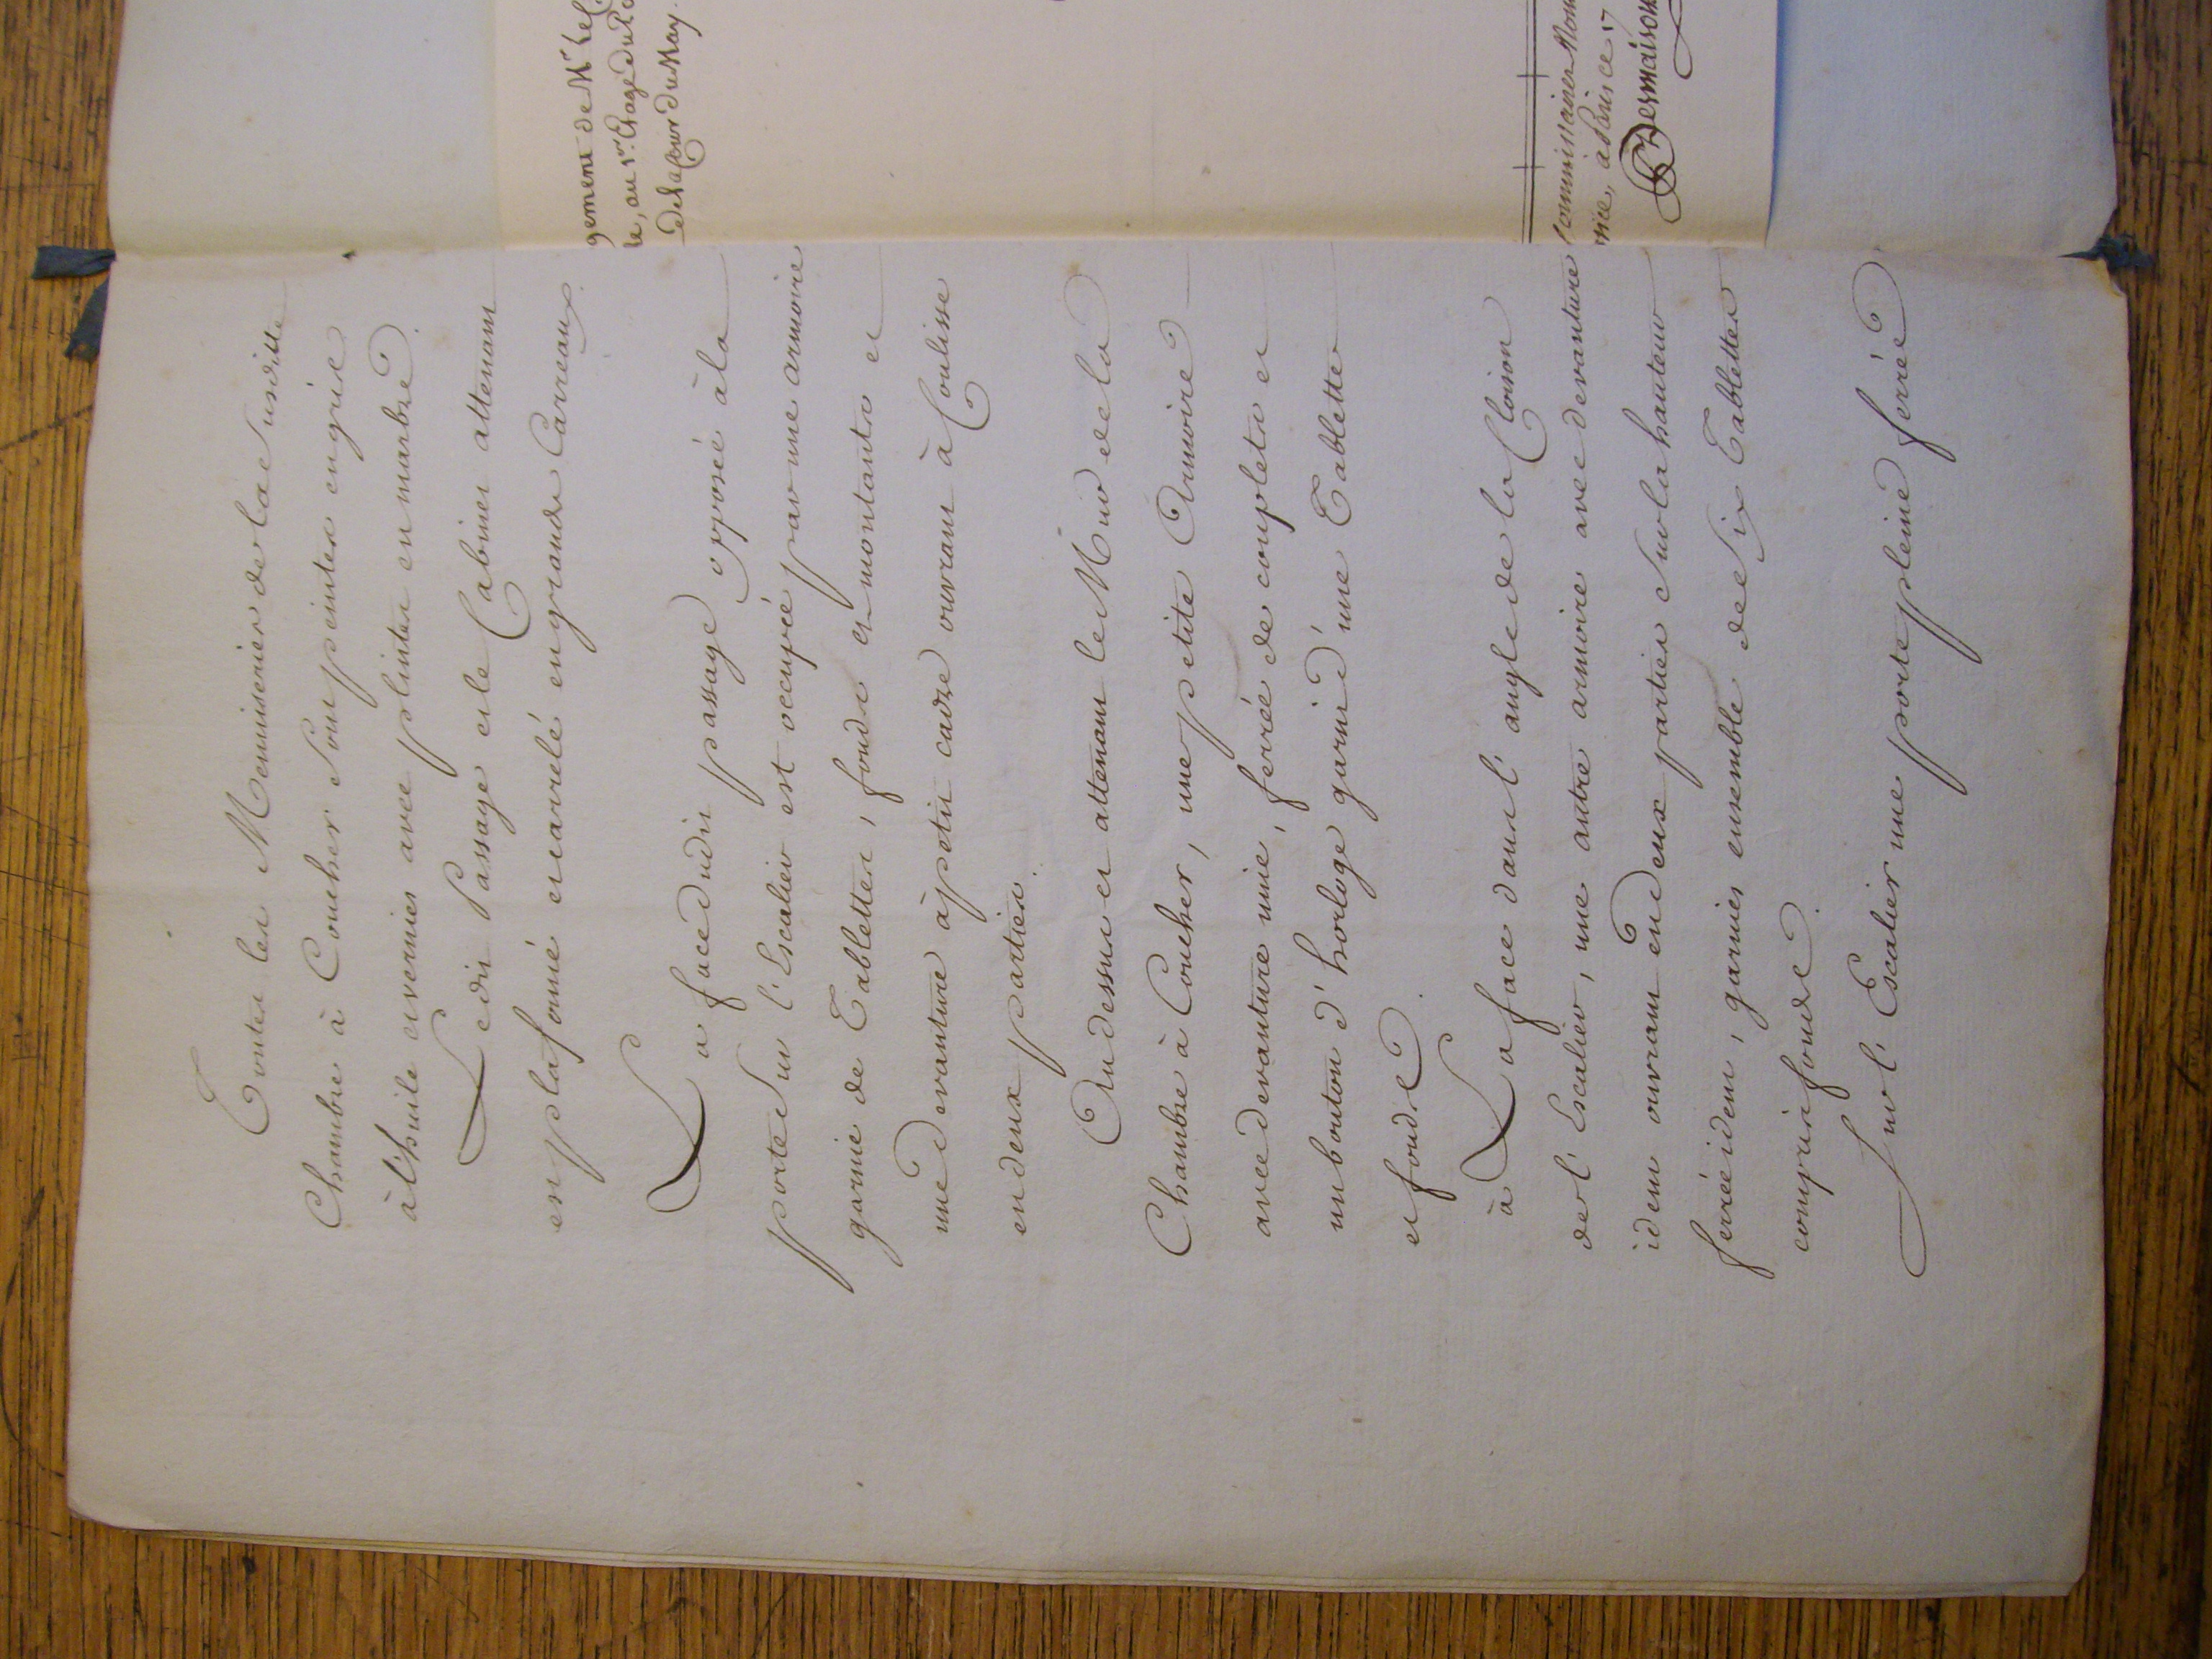 Toutes les Menuiseries de la Susditte
Chambre à Coucher sont peintes en gris
à l'huile et vernies avec plintes en marbre.
Ledit Passage et le Cabinet attenant
est plafonné et carrelé en grands Carreaux.
La face dudit passage opposée à la
porte sur l'Escalier est occupée par une armoire
garnie de Tablettes, fonds et montants et
une devanture à petit cadre ouvrant à Coulisse
en deux parties.
Au dessus et attenant le Mur de la
Chambre à Coucher, une petite Armoire
avec devanture unie, ferrée de couplets et
un bouton d'horloge garnie d'une Tablette
et fonds.
à La face dans l'angle de la Cloison
de l'Escalier, une autre armoire avec devanture
idem ouvrant en deux parties sur la hauteur
ferrée idem, garnies ensemble de Six Tablettes
compris fonds.
Sur l'Escalier une porte pleine ferrée
gement de Mr. Lel
le, au 1er. Etage du Pa
de la Cour du May.
Commissaires Nom
mce, à Paris ce 17
Desmaisons